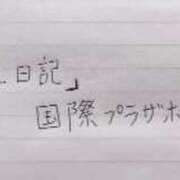 日記」
国際プラザホ